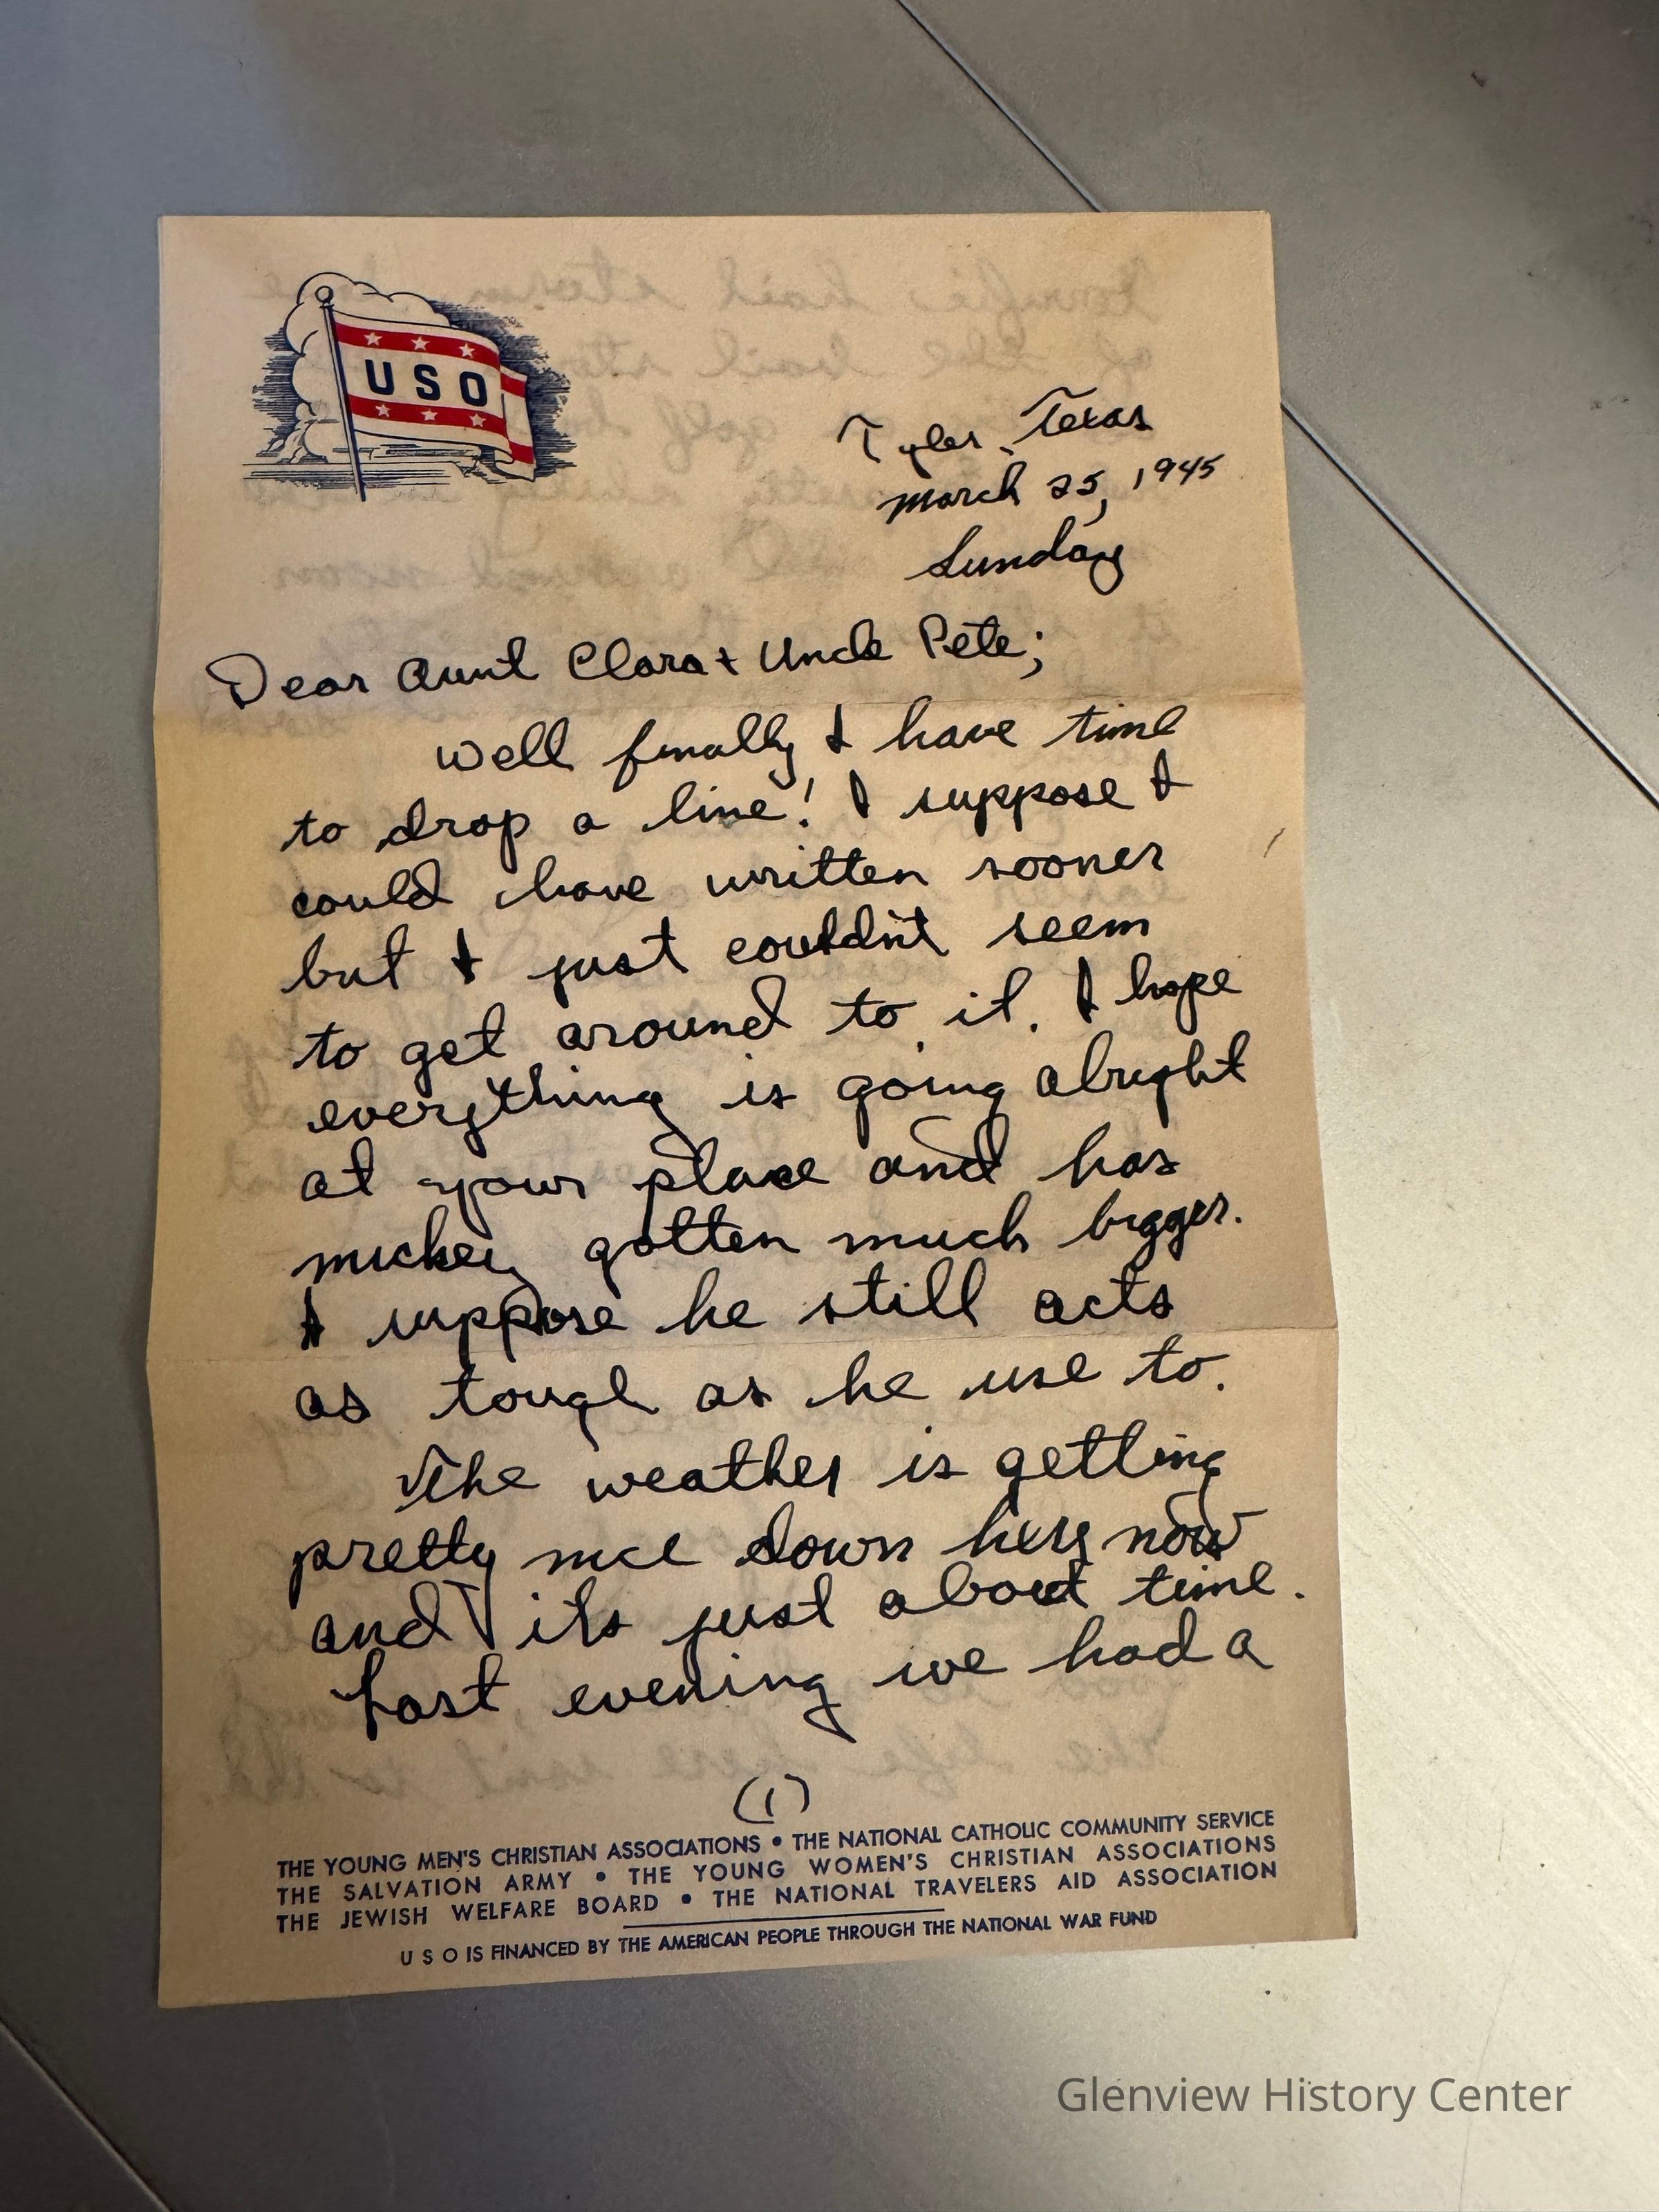 USO
Tyler, Texas
March 25, 1945
Sunday
Dear Aunt Clara + Uncle Pete;
Well finally I have time
to drop a line! I suppose I
could have written sooner
but I just couldn't seem
to get around to it. I hope
everything is going alright
at your place and has
mickey gotten much bigger.
I suppose he still acts
as tough as he use to.
The weather is getting
pretty nice down here now
and its just about time.
Last evening we had a
(1)
THE YOUNG MEN'S CHRISTIAN ASSOCIATIONS • THE NATIONAL CATHOLIC COMMUNITY SERVICE
THE SALVATION ARMY • THE YOUNG WOMEN'S CHRISTIAN ASSOCIATIONS
THE JEWISH WELFARE BOARD • THE NATIONAL TRAVELERS AID ASSOCIATION
U S O IS FINANCED BY THE AMERICAN PEOPLE THROUGH THE NATIONAL WAR FUND
Glenview History Center